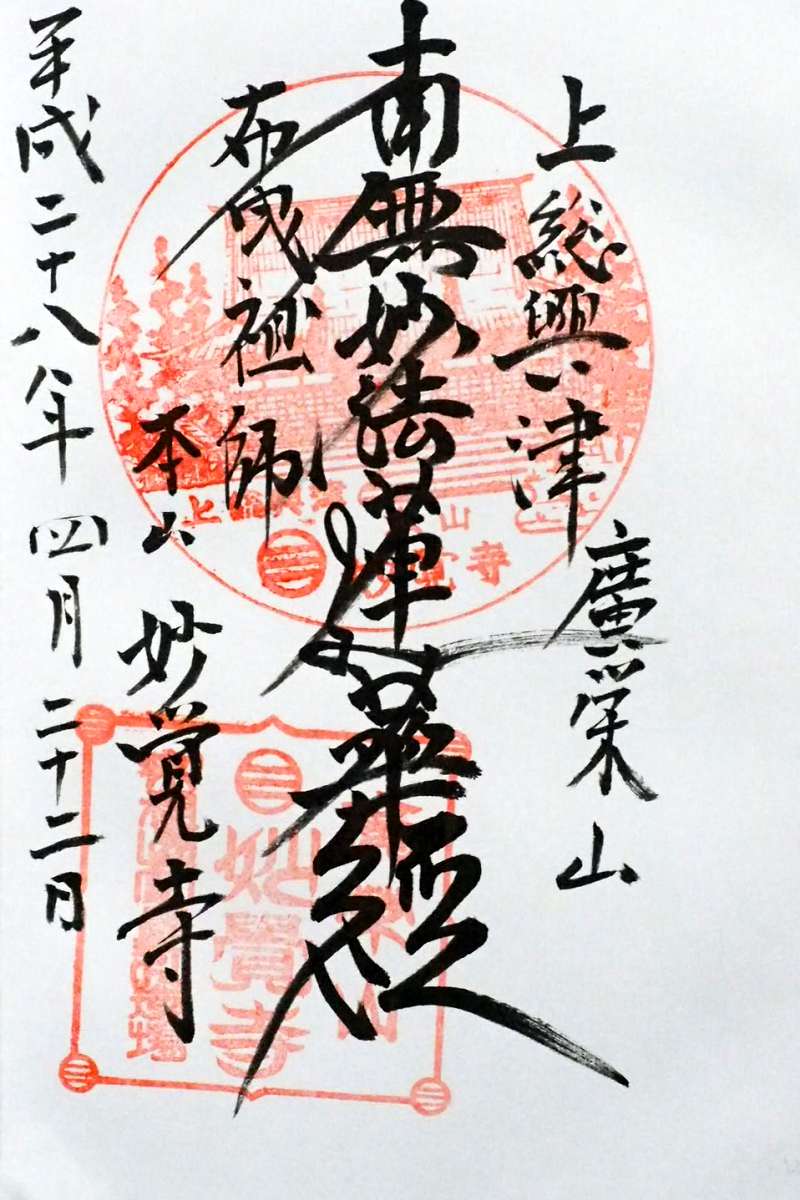 上總興津
廣栄山
南無妙法蓮華経
布曳祖師
本山
妙覚寺
平成二十八年四月二十二日
妙覺寺